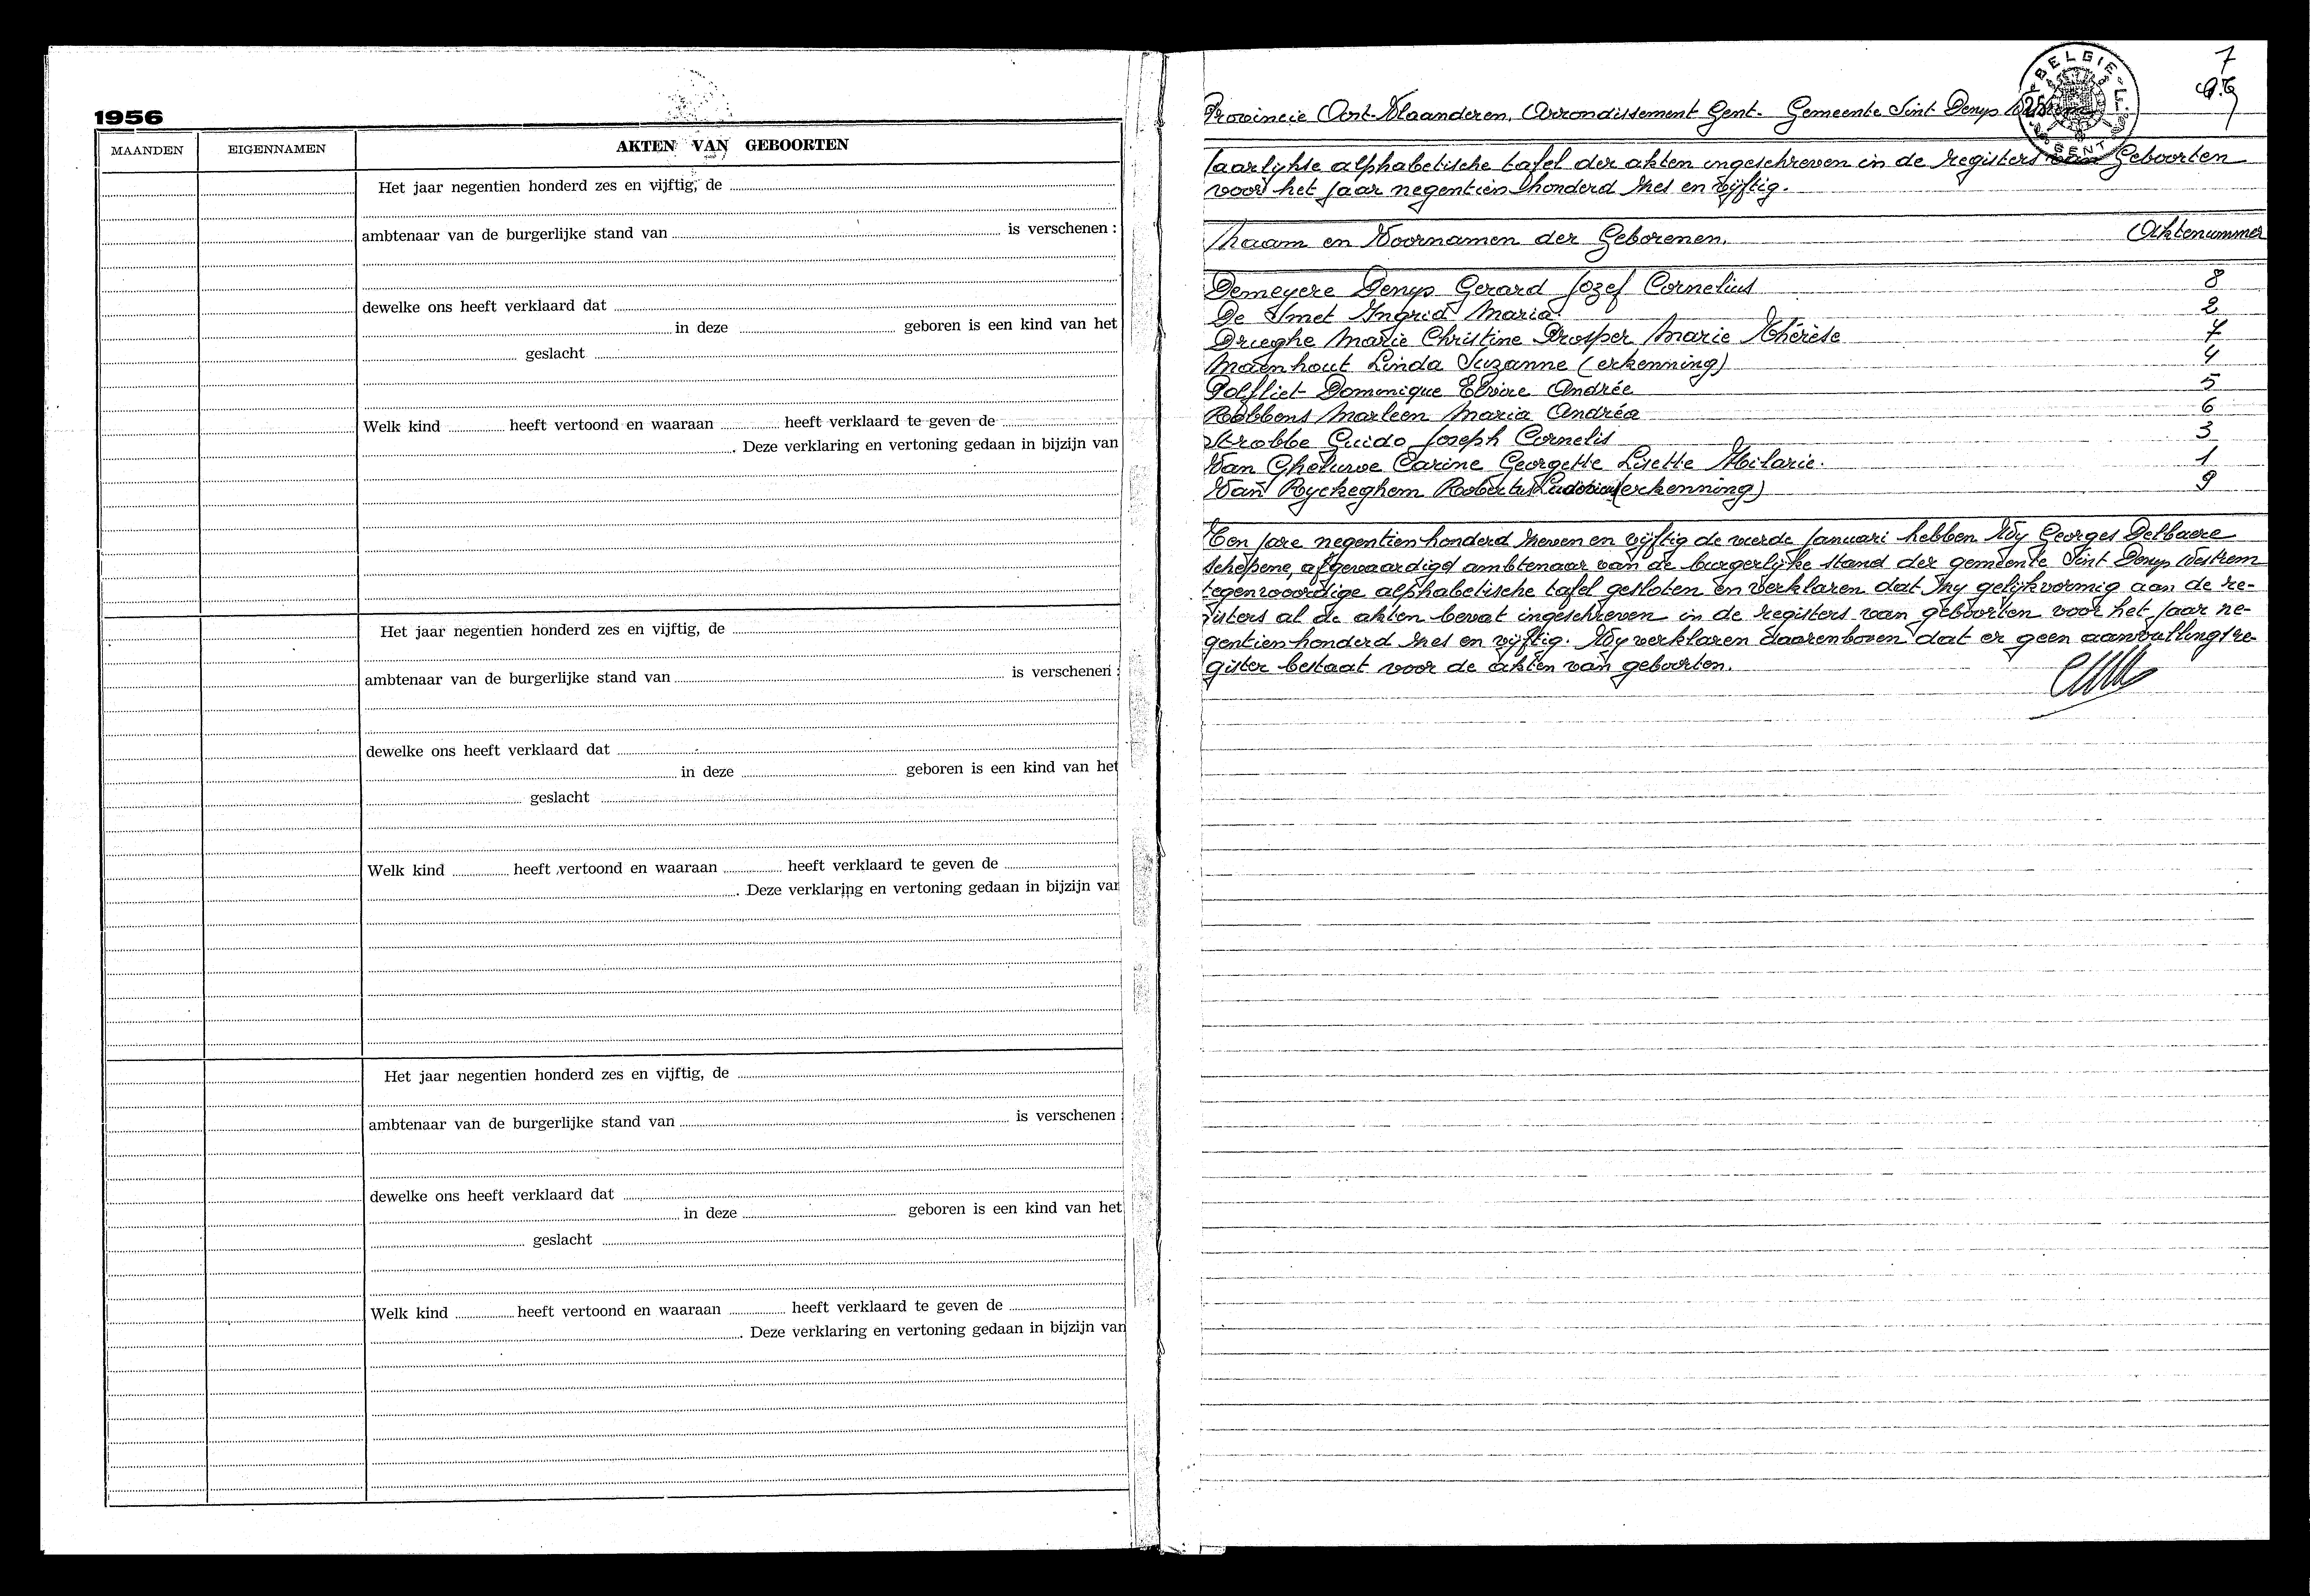 1956
MAANDEN EIGENNAMEN AKTEN VAN GEBOORTEN
Het jaar negentien honderd zes en vijftig, de
ambtenaar van de burgerlijke stand van is verschenen :
dewelke ons heeft verklaard dat
in deze geboren is een kind van het
geslacht
Welk kind heeft vertoond en waaraan heeft verklaard te geven de
. Deze verklaring en vertoning gedaan in bijzijn van
Het jaar negentien honderd zes en vijftig, de
ambtenaar van de burgerlijke stand van is verschenen :
dewelke ons heeft verklaard dat
in deze geboren is een kind van het
geslacht
Welk kind heeft vertoond en waaraan heeft verklaard te geven de
. Deze verklaring en vertoning gedaan in bijzijn van
Het jaar negentien honderd zes en vijftig, de
ambtenaar van de burgerlijke stand van is verschenen :
dewelke ons heeft verklaard dat
in deze geboren is een kind van het
geslacht
Welk kind heeft vertoond en waaraan heeft verklaard te geven de
. Deze verklaring en vertoning gedaan in bijzijn van
7
BELGIE
GENT
Provincie Oost-Vlaanderen, Arrondissement Gent. Gemeente Sint Denys Westrem
Jaarlykse alphabetische tafel der akten ingeschreven in de registers van Geboorten
voor het jaar negentien honderd zes en vijftig.
Naam en Voornamen der Geborenen. Aktenummer
Demeyere Denys Gerard Jozef Cornelius 8
De Smet Ingrid Maria 2
Drieghe Marie Christine Prosper Marie Thérèse 7
Maenhout Linda Suzanne (erkenning) 4
Polfliet Dominique Elvire Andrée 5
Robbens Marleen Maria Andréa 6
Strobbe Guido Joseph Cornelis 3
Van Gheluwe Carine Georgette Lisette Hilarie. 1
Van Ryckeghem Robertus Ludovicus (erkenning) 9
Ten jare negentien honderd zeven en vijftig de vierde Januari hebben Wy Georges Delbaere
schepene, afgevaardigd ambtenaar van de burgerlijke stand der gemeente Sint Denys Westrem
tegenwoordige alphabetische tafel gesloten en verklaren dat zy gelijkvormig aan de re-
gisters al de akten bevat ingeschreven in de registers van geboorten voor het jaar ne-
gentien honderd zes en vijftig. Wy verklaren daarenboven dat er geen aanvullingsre-
gister bestaat voor de akten van geboorten.